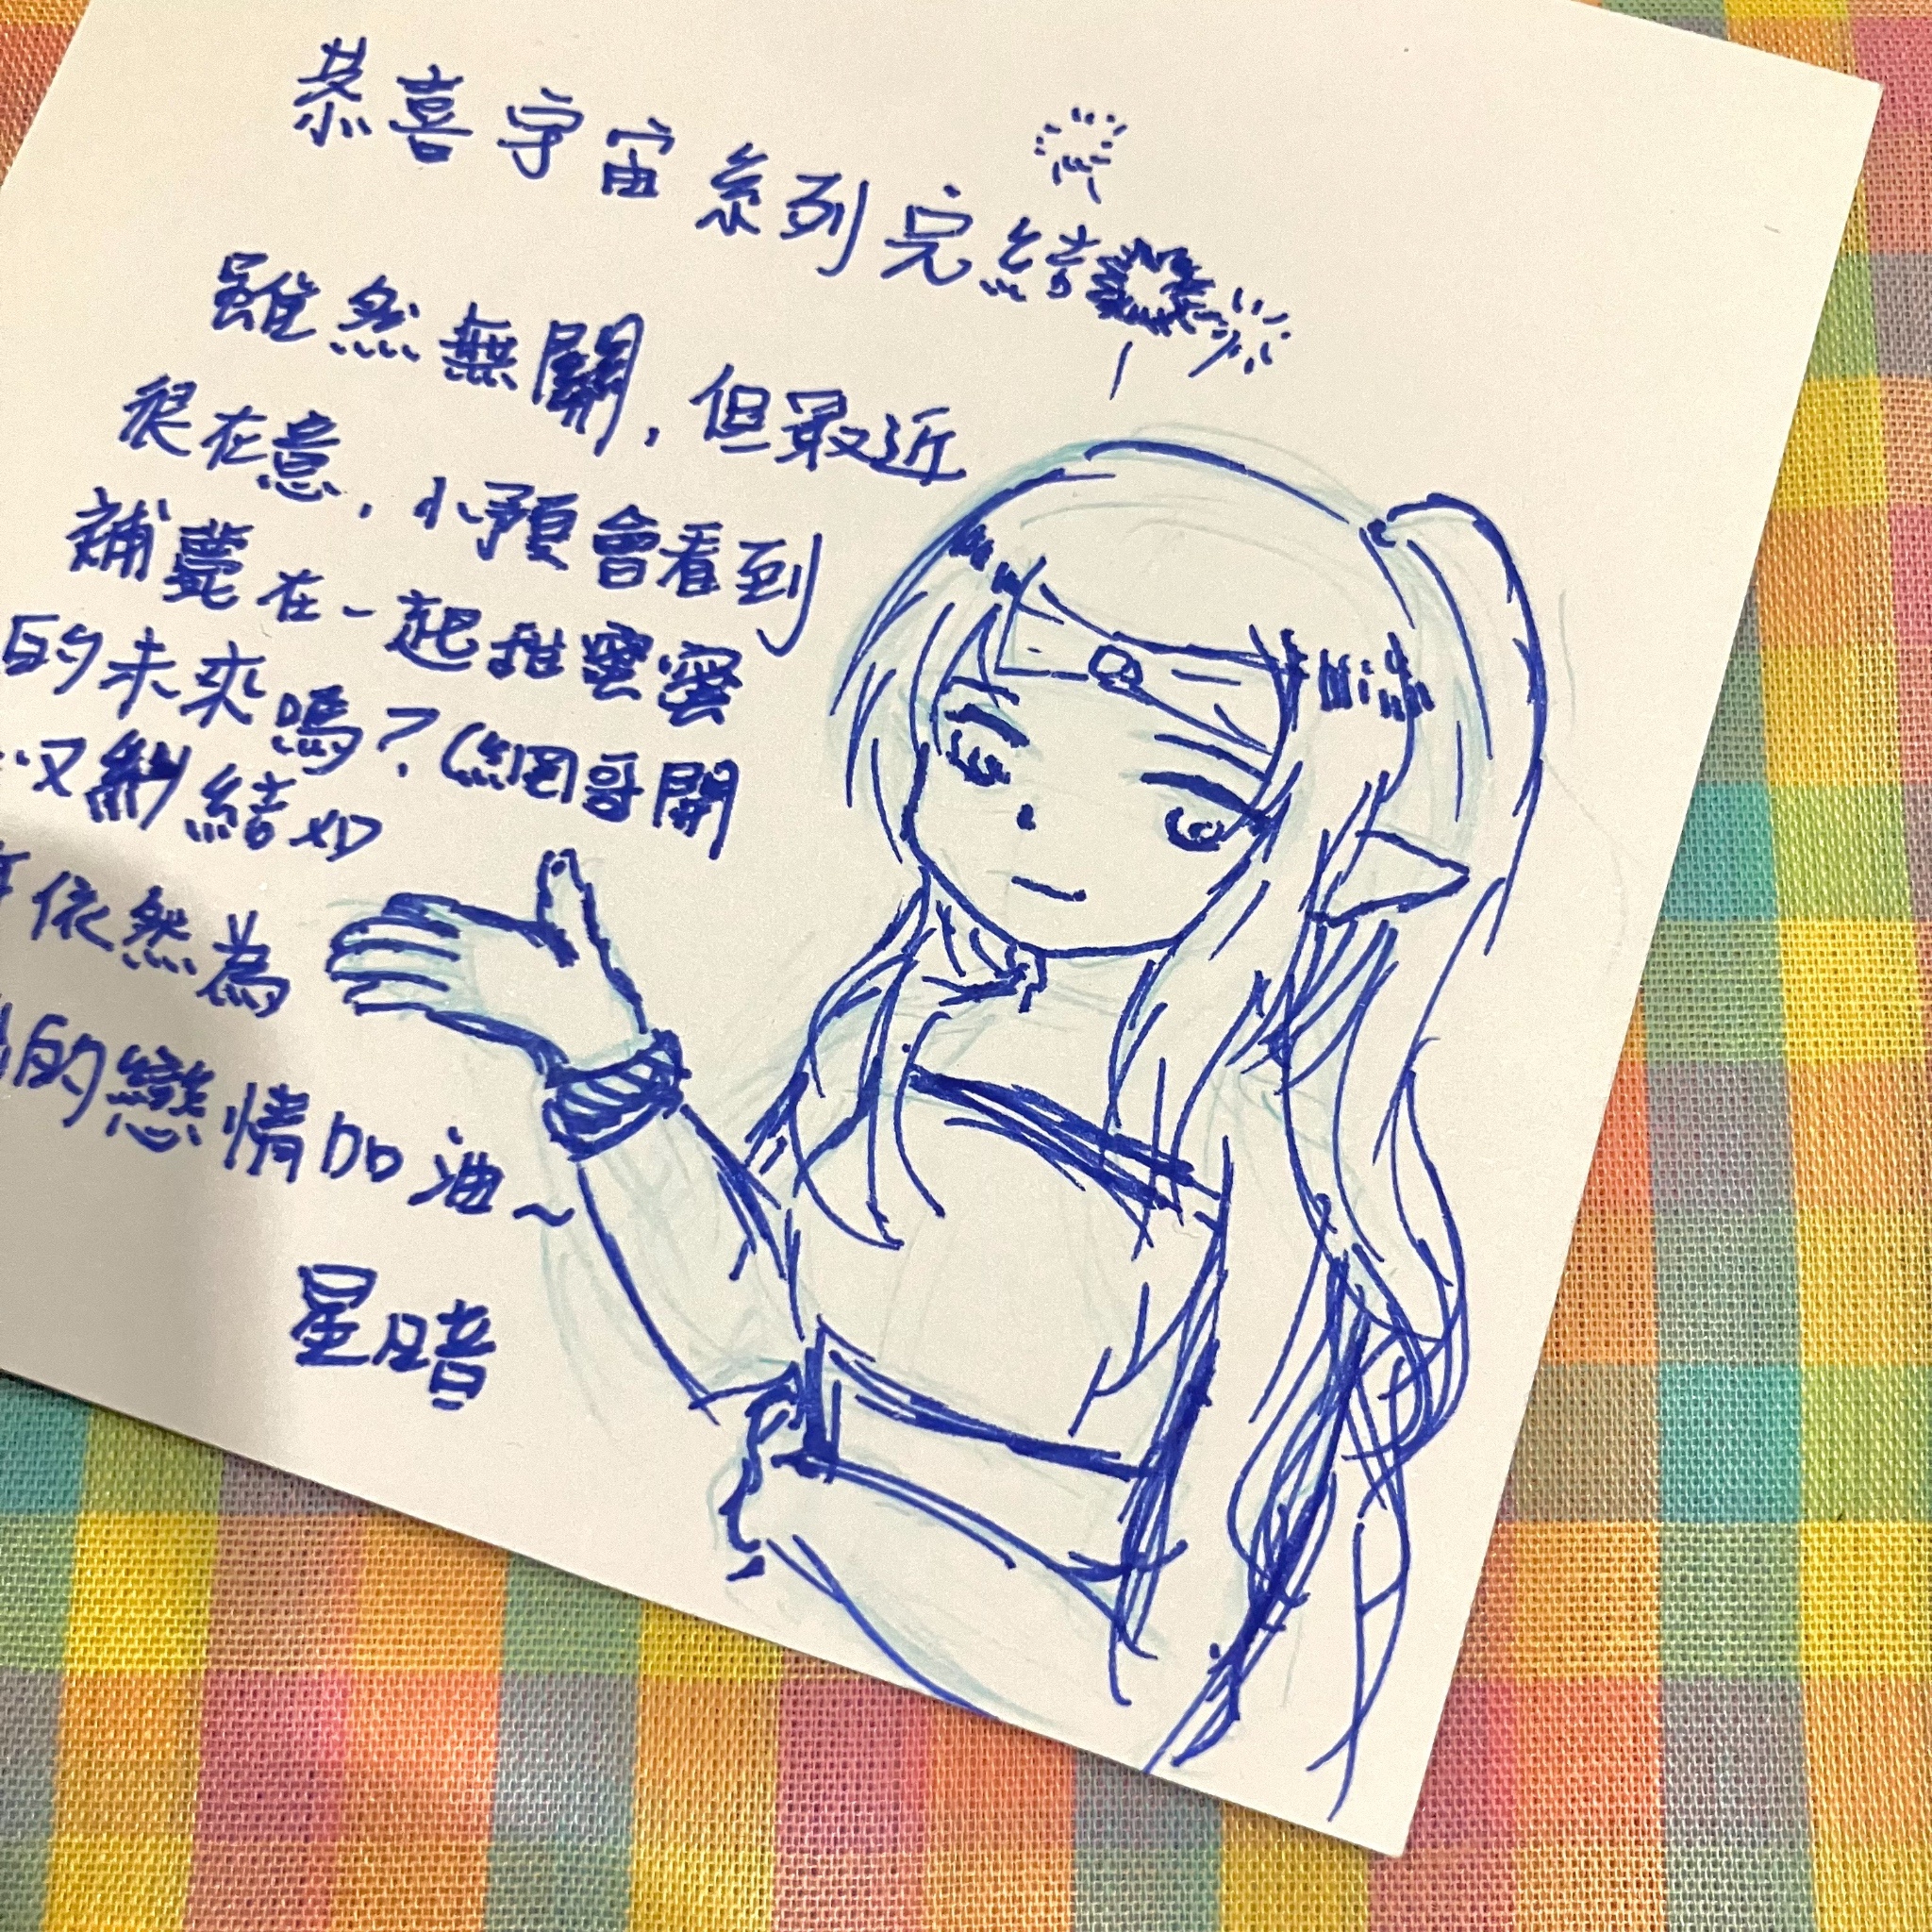 恭喜宇宙系列完結
雖然無關,但最近
很在意,小預會看到
補薨在一起甜蜜蜜
的未來嗎?(網哥開
又糾結如
依然為
的戀情加油~
星暗